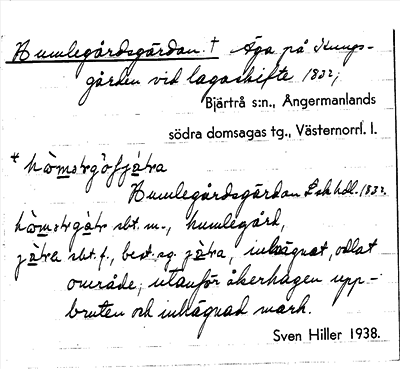 Humlegårdsgärdan. † Äga på Kungs-
gården vid lagaskifte 1832;
Bjärtrå s:n., Ångermanlands
södra domsagas tg., Västernorrl. l.
†
Humlegårdsgärdan L sk hdl. 1832.
sbt. m., humlegård,
sbt. f., best. sg. inhägnat, odlat
område; utanför åkerhagen upp-
bruten och inhägnad mark.
Sven Hiller 1938.